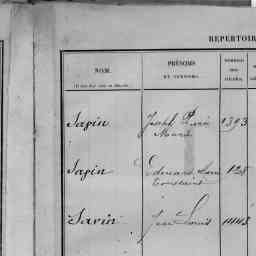 REPERTOIR
NOM.
PRÉNOMS
ET SURNOMS.
NUMÉRO
Sapin Joseph Pierre 1393
Marie
Sapin Edouard Louis 128
Toussaint
Savin Jean Louis 1443